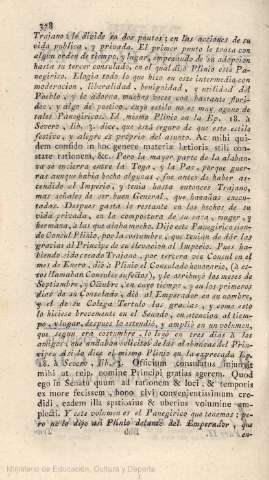 378
Trajano: le divide en dos puntos; en las acciones de su
vida publica, y privada. El primer punto le trata con
algun orden de tiempo, y lugar, empezando de su adopcion
hasta su tercer consulado, en el qual dixo Plinio este Pa-
negirico. Elogia todo lo que hizo en este intermedio con
moderacion, liberalidad, benignidad, y utilidad del
Pueblo, y le adorna muchas veces con bastante
y algo de poetico, cuyo estilo no es muy ageno de
tales Panegiricos. El mismo Plinio en la Ep. 18. à
Severo, lib. 3. dice, que está seguro de que este estilo
festivo, y alegre es proprio del asunto. Ac mihi qui-
dem confido in hoc genere materiæ lætioris stili cons-
tare rationem, &c. Pero la mayor parte de la alaban-
za se encierra entre la Toga, y la Paz, porque guer-
ras aunque habia hecho algunas, fue antes de haber as-
cendido al Imperio, y tenia hasta entonces Trajano,
mas señales de ser buen General, que hazañas execu-
tadas. Despues gasta lo restante en los hechos de su
vida privada, en la compostura de su casa, muger, y
hermana, à las que alaba mucho. Dijo este Panegirico sien-
do Consul Plinio, por lo setiembre, con
gracias al Principe de su elevacion al Imperio. Pues ha-
biendo sido creado Trajano, por tercera vez Consul en el
mes de Enero, diò à Plinio el Consulado honorario, (à es-
tos llamaban Consules sufectos), y le atribuyó los meses de
Septiembre, y Octubre, en cuyo tiempo, y en los primeros
dias de su Consulado, diò al Emperador en su nombre,
y el de su Colega Tertulo las gracias, y como esto
lo hiciese brevemente en el Senado, en atencion al tiem-
po, y lugar, despues lo estendió, y amplió en un volumen,
que segun era costumbre, lo leyó en tres dias à los
amigos, que andaban solicitos de las alabanzas del Prin-
cipe: asi lo dice el mismo Plinio en la expresada Ep.
18. à Severo, lib. 3. Officium consulatus injunxit
mihi ut reip. nomine Principi gratias agerem. Quod
ego in Senatu quum ad rationem & loci, & temporis
ex more fecissem, bono civi convenientissimum cre-
didi, eadem illa spatiosius & uberius volumine am-
plecti. Y este volumen es el Panegirico que tenemos; pe-
ro no le dijo asi Plinio delante del Emperador, que
Ministerio de Educación, Cultura y Deporte